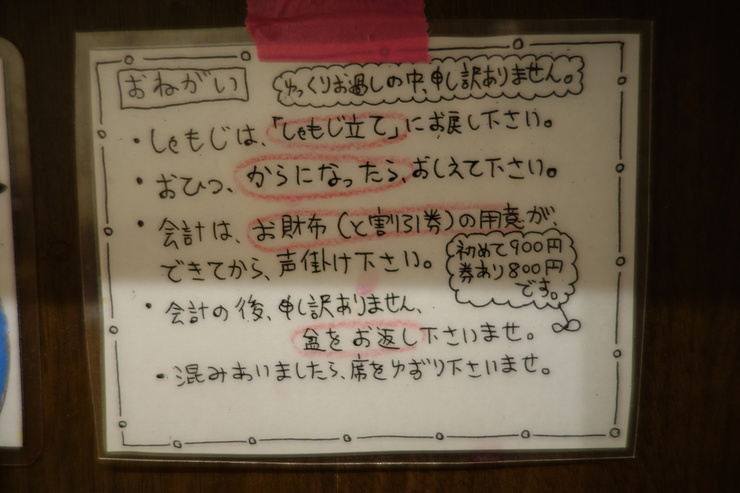 おねがい
ゆっくりお過しの中、申し訳ありません。
・しゃもじは、「しゃもじ立て」にお戻し下さい。
・おひつ、からになったら、おしえて下さい。
・会計は、お財布(と割引券)の用意が、
できてから、声掛け下さい。
初めて900円
券あり800円
です。
・会計の後、申し訳ありません、
盆をお返し下さいませ。
・混みあいましたら、席をゆずり下さいませ。